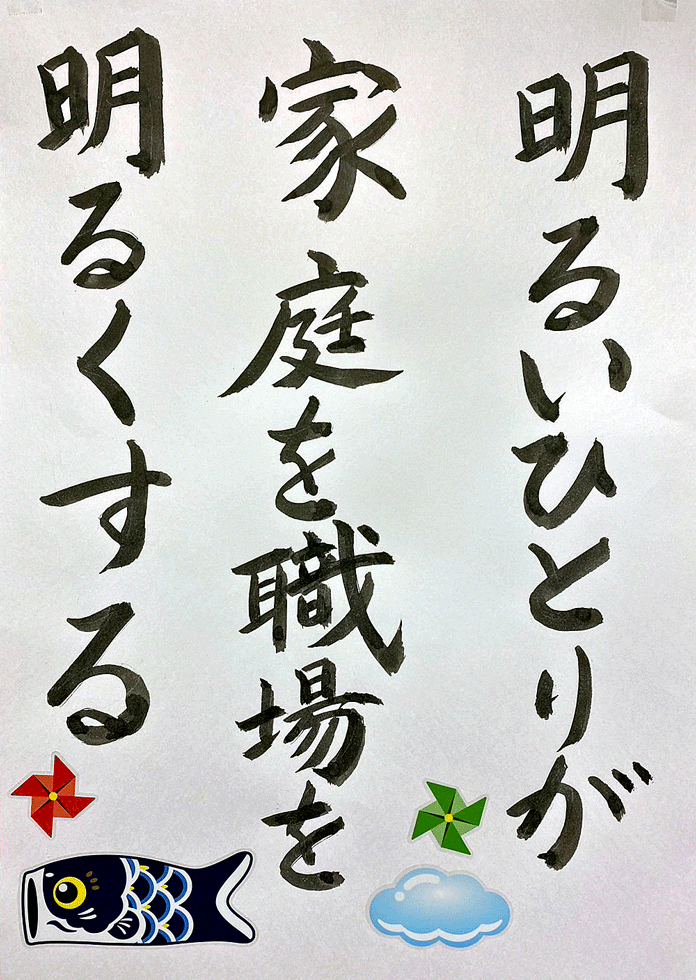 明るいひとりが
家庭を職場を
明るくする